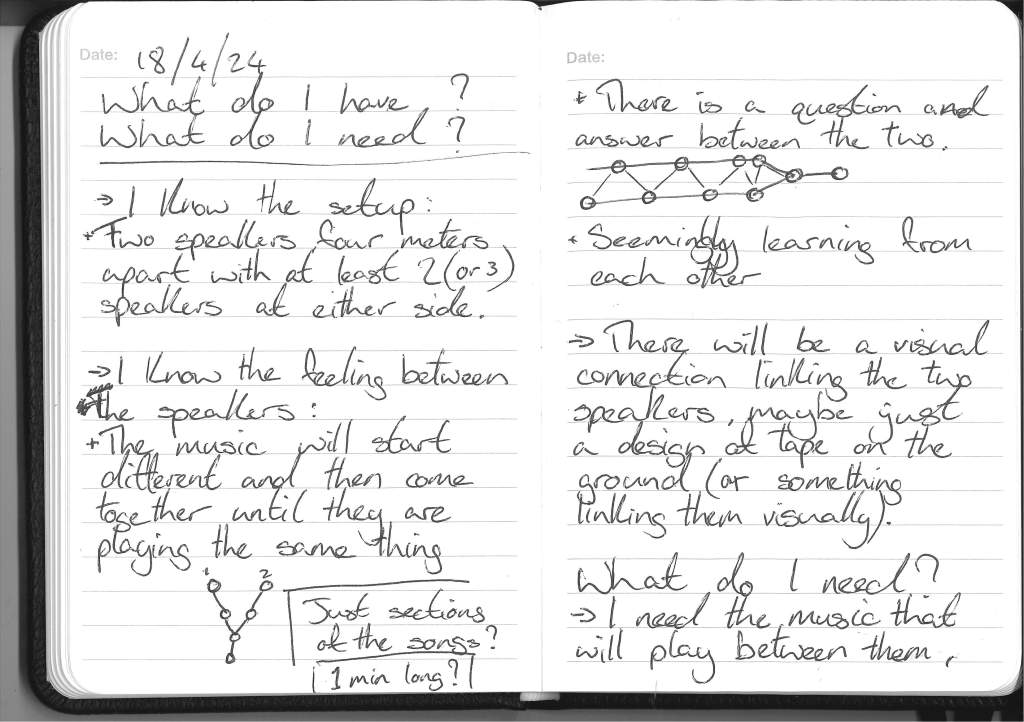 Date: 18/4/24
What do I have ?
What do I need ?
→ I know the setup :
+ Two speakers four meters
apart with at least 2 (or 3)
speakers at either side.
→ I know the feeling between
the speakers :
+ The music will start
different and then come
together until they are
playing the same thing
1 2
Just sections
of the songs?
1 min long?
Date:
+ There is a question and
answer between the two.
+ Seemingly learning from
each other
→ There will be a visual
connection linking the two
speakers, maybe just
a design of tape on the
ground (or something
linking them visually).
What do I need?
→ I need the music that
will play between them,